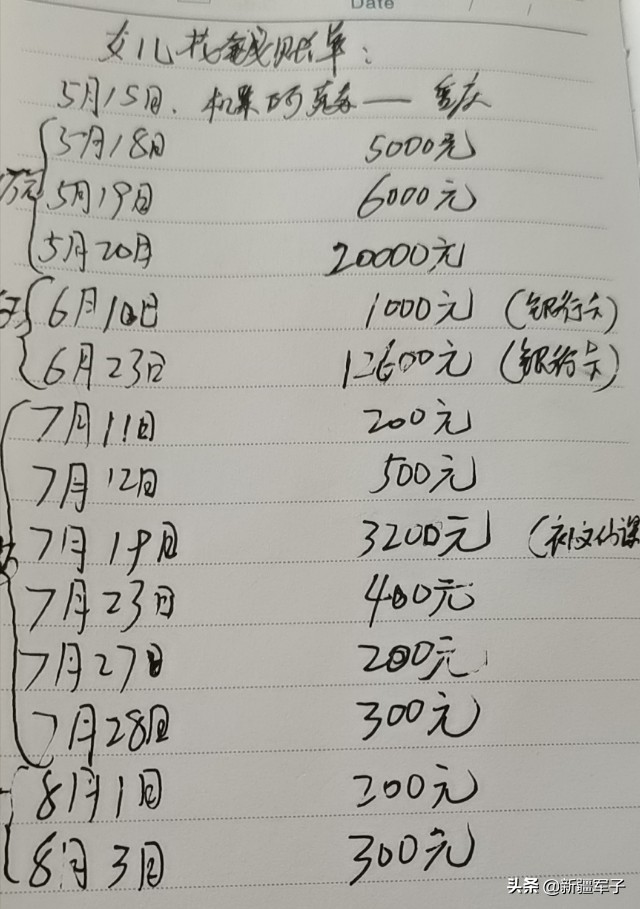 Date
女儿花钱账单：
5月15日、机票阿克苏——重庆
5月18日 5000元
万元 5月19日 6000元
5月20日 20000元
6月10日 1000元 (银行卡)
6月23日 12600元 (银行卡)
7月11日 200元
7月12日 500元
7月19日 3200元 (补文化课
7月23日 400元
7月27日 200元
7月28日 300元
8月1日 200元
8月3日 300元
头条 @新疆军子